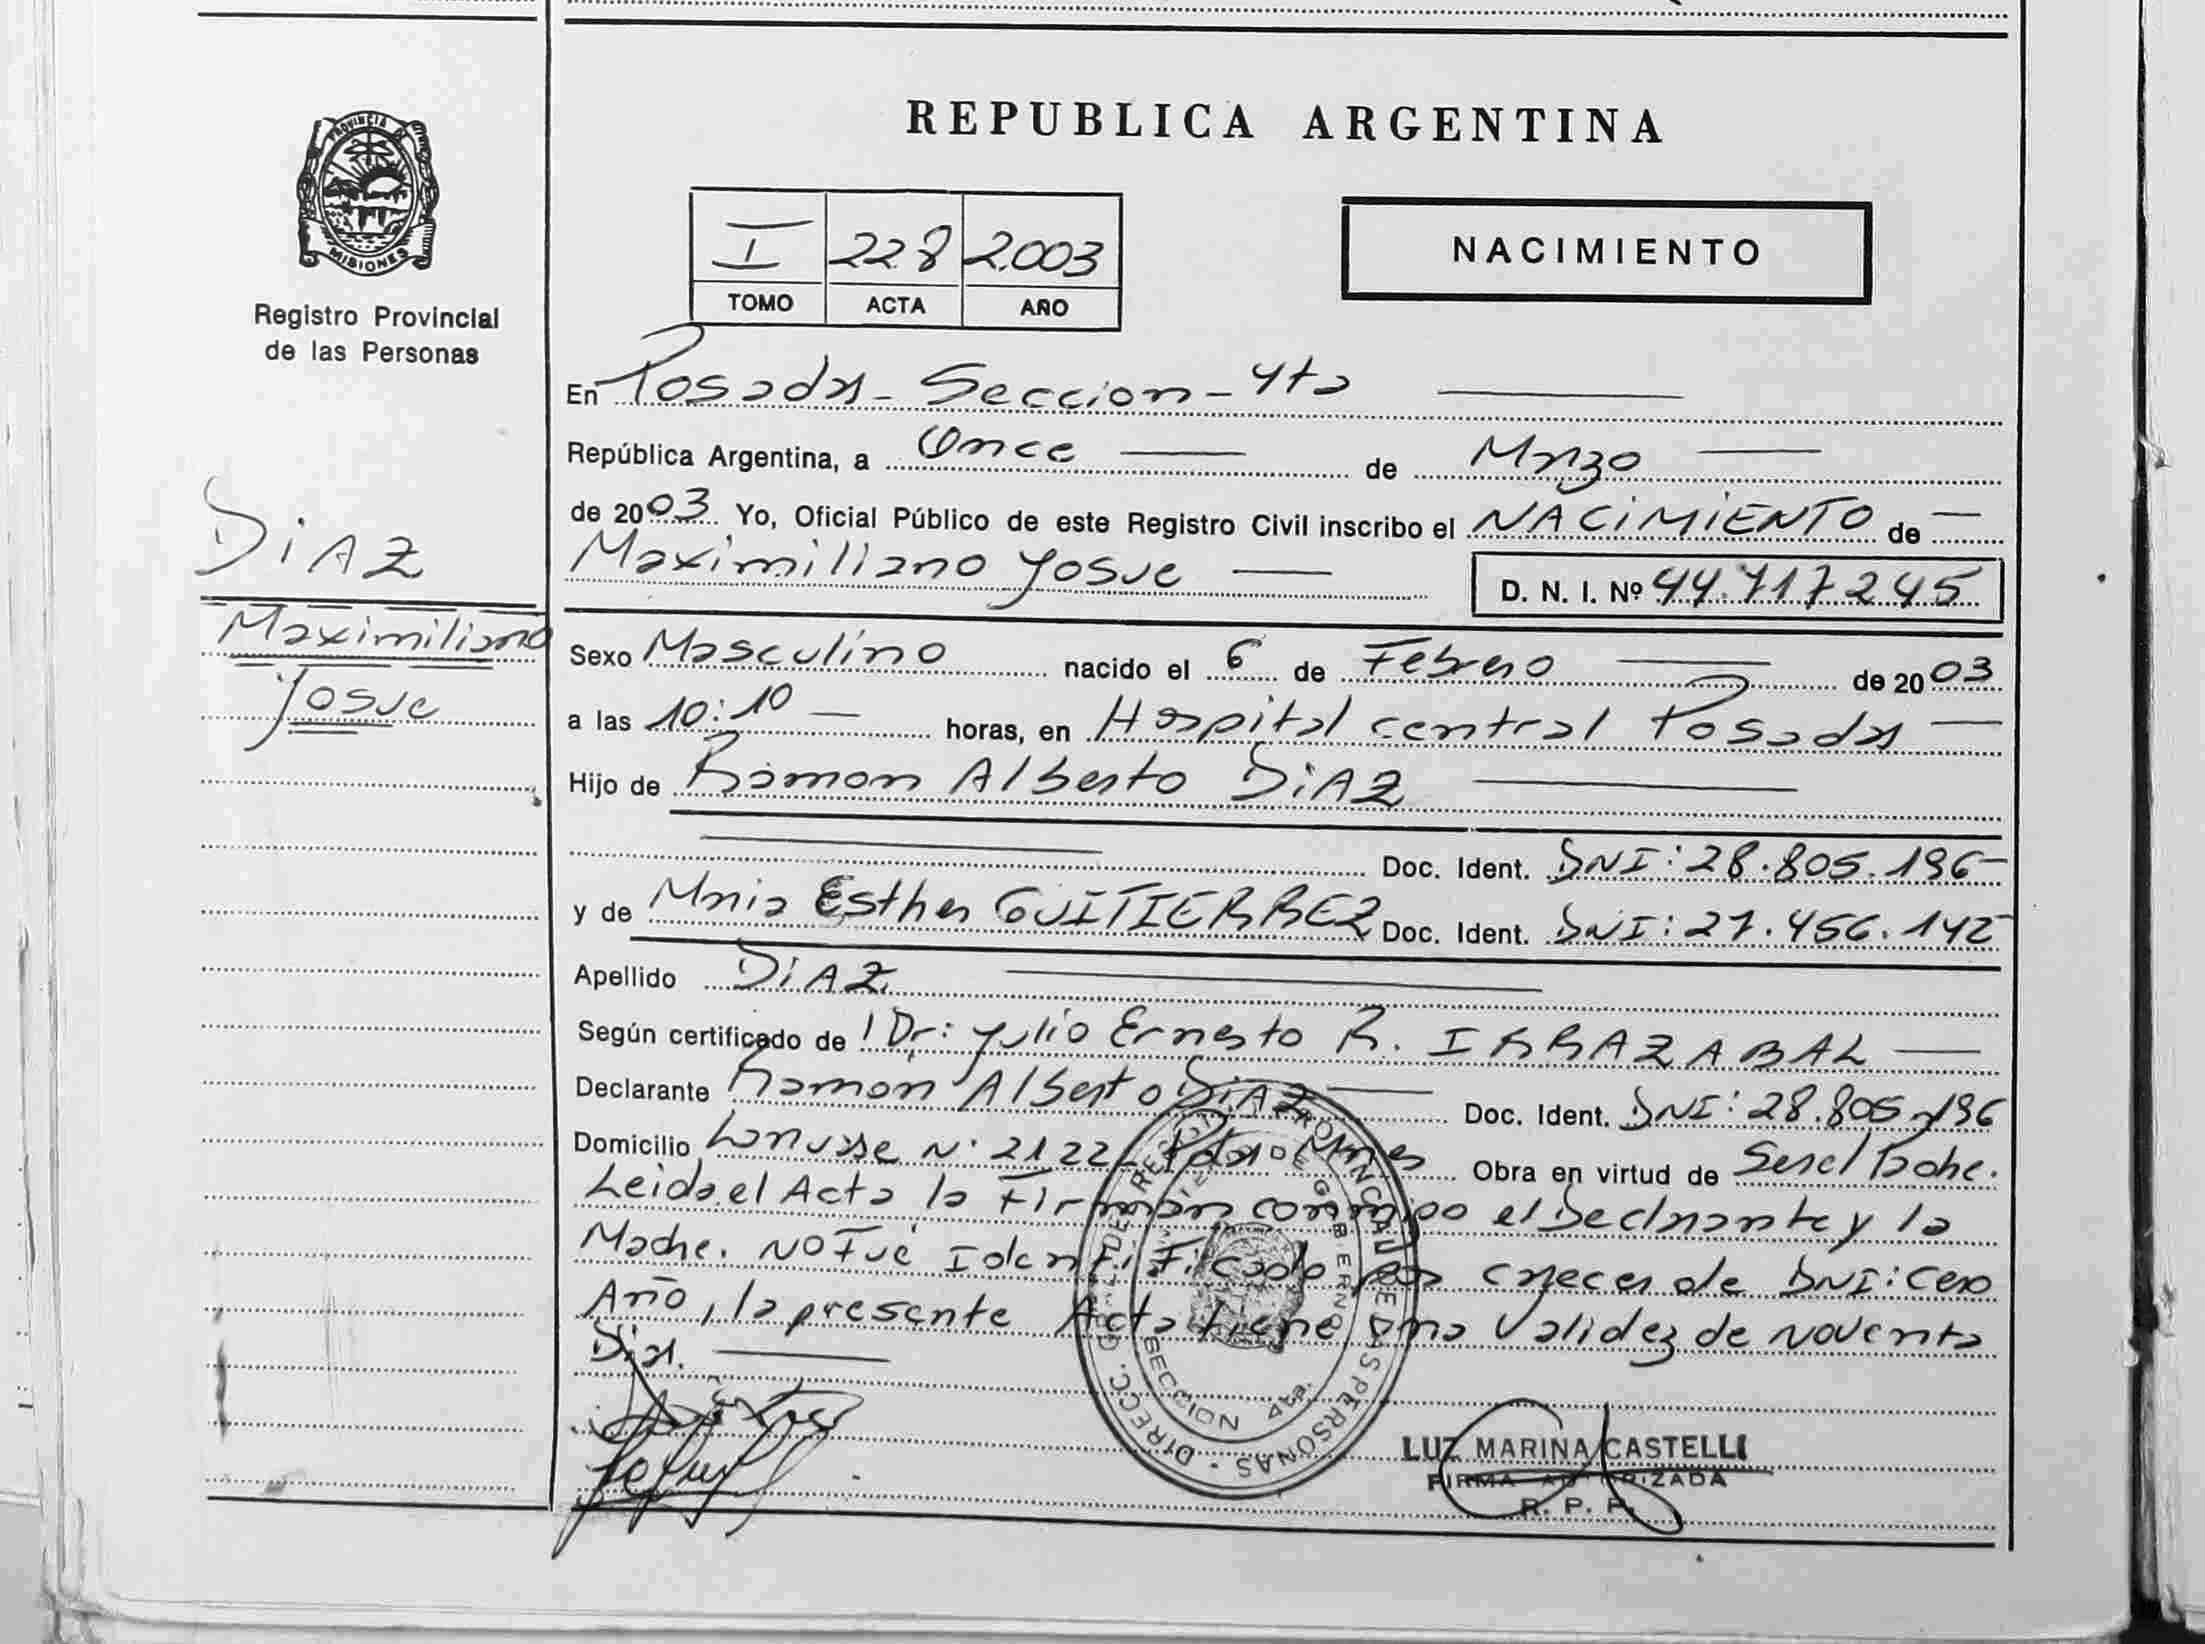 REPUBLICA ARGENTINA
PROVINCIA DE
MISIONES
Registro Provincial
de las Personas
I 228 2.003
TOMO ACTA AÑO
NACIMIENTO
DiAZ
Maximiliano
Yosue
En Posadas - Seccion - 4ta
República Argentina, a Once de Marzo
de 2003 Yo, Oficial Público de este Registro Civil inscribo el NACiMiENTO de
Maximiliano Yosue D. N. I. Nº 44.717245
Sexo Masculino nacido el 6 de Febrero de 2003
a las 10:10 horas, en Hospital central Posadas
Hijo de Ramon Alberto DiAZ
Doc. Ident. DNI: 28.805.196
y de Maria Esther GUITIERREZ Doc. Ident. DNI: 27.456.142
Apellido DiAZ
Según certificado de Dr: Yulio Ernesto R. IRRAZABAL
Declarante Ramon Alberto DiAZ Doc. Ident. DNI: 28.805.196
Domicilio Lanusse N° 2122 Pdas Mnes Obra en virtud de Ser el Padre.
Leida el Acta la Firman conmigo el Declarante y la
Madre. NO Fué IdentiFicado por crecer de DNI: Cero
Año, la presente Acta tiene una Validez de Noventa
Dias.
DIRECC. GRAL DE REGISTRO PROVINCIAL DE LAS PERSONAS
MINISTERIO DE GOBIERNO
SECCION 4ta.
LUZ MARINA CASTELLI
FIRMA AUTORIZADA
R. P. P.